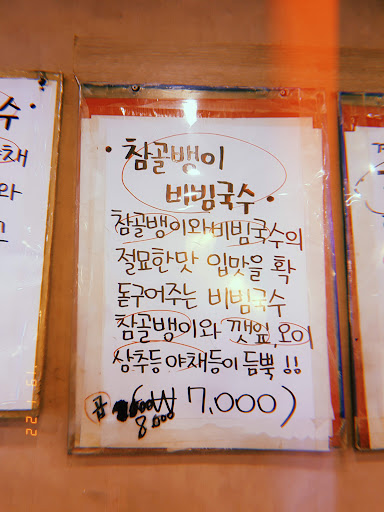 • 참골뱅이
비빔국수 •
참골뱅이와 비빔국수의
절묘한맛 입맛을 확
돋구어주는 비빔국수
참골뱅이와 깻잎, 오이
상추등 야채등이 듬뿍 !!
(₩ 7,000)
8,000
수 •
야채
와
22 1 '61